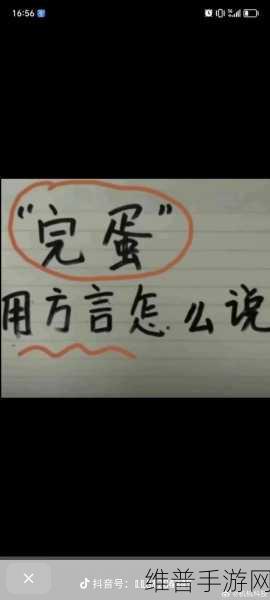 16:56
“完蛋”
用方言怎么说
抖音号：
维普手游网